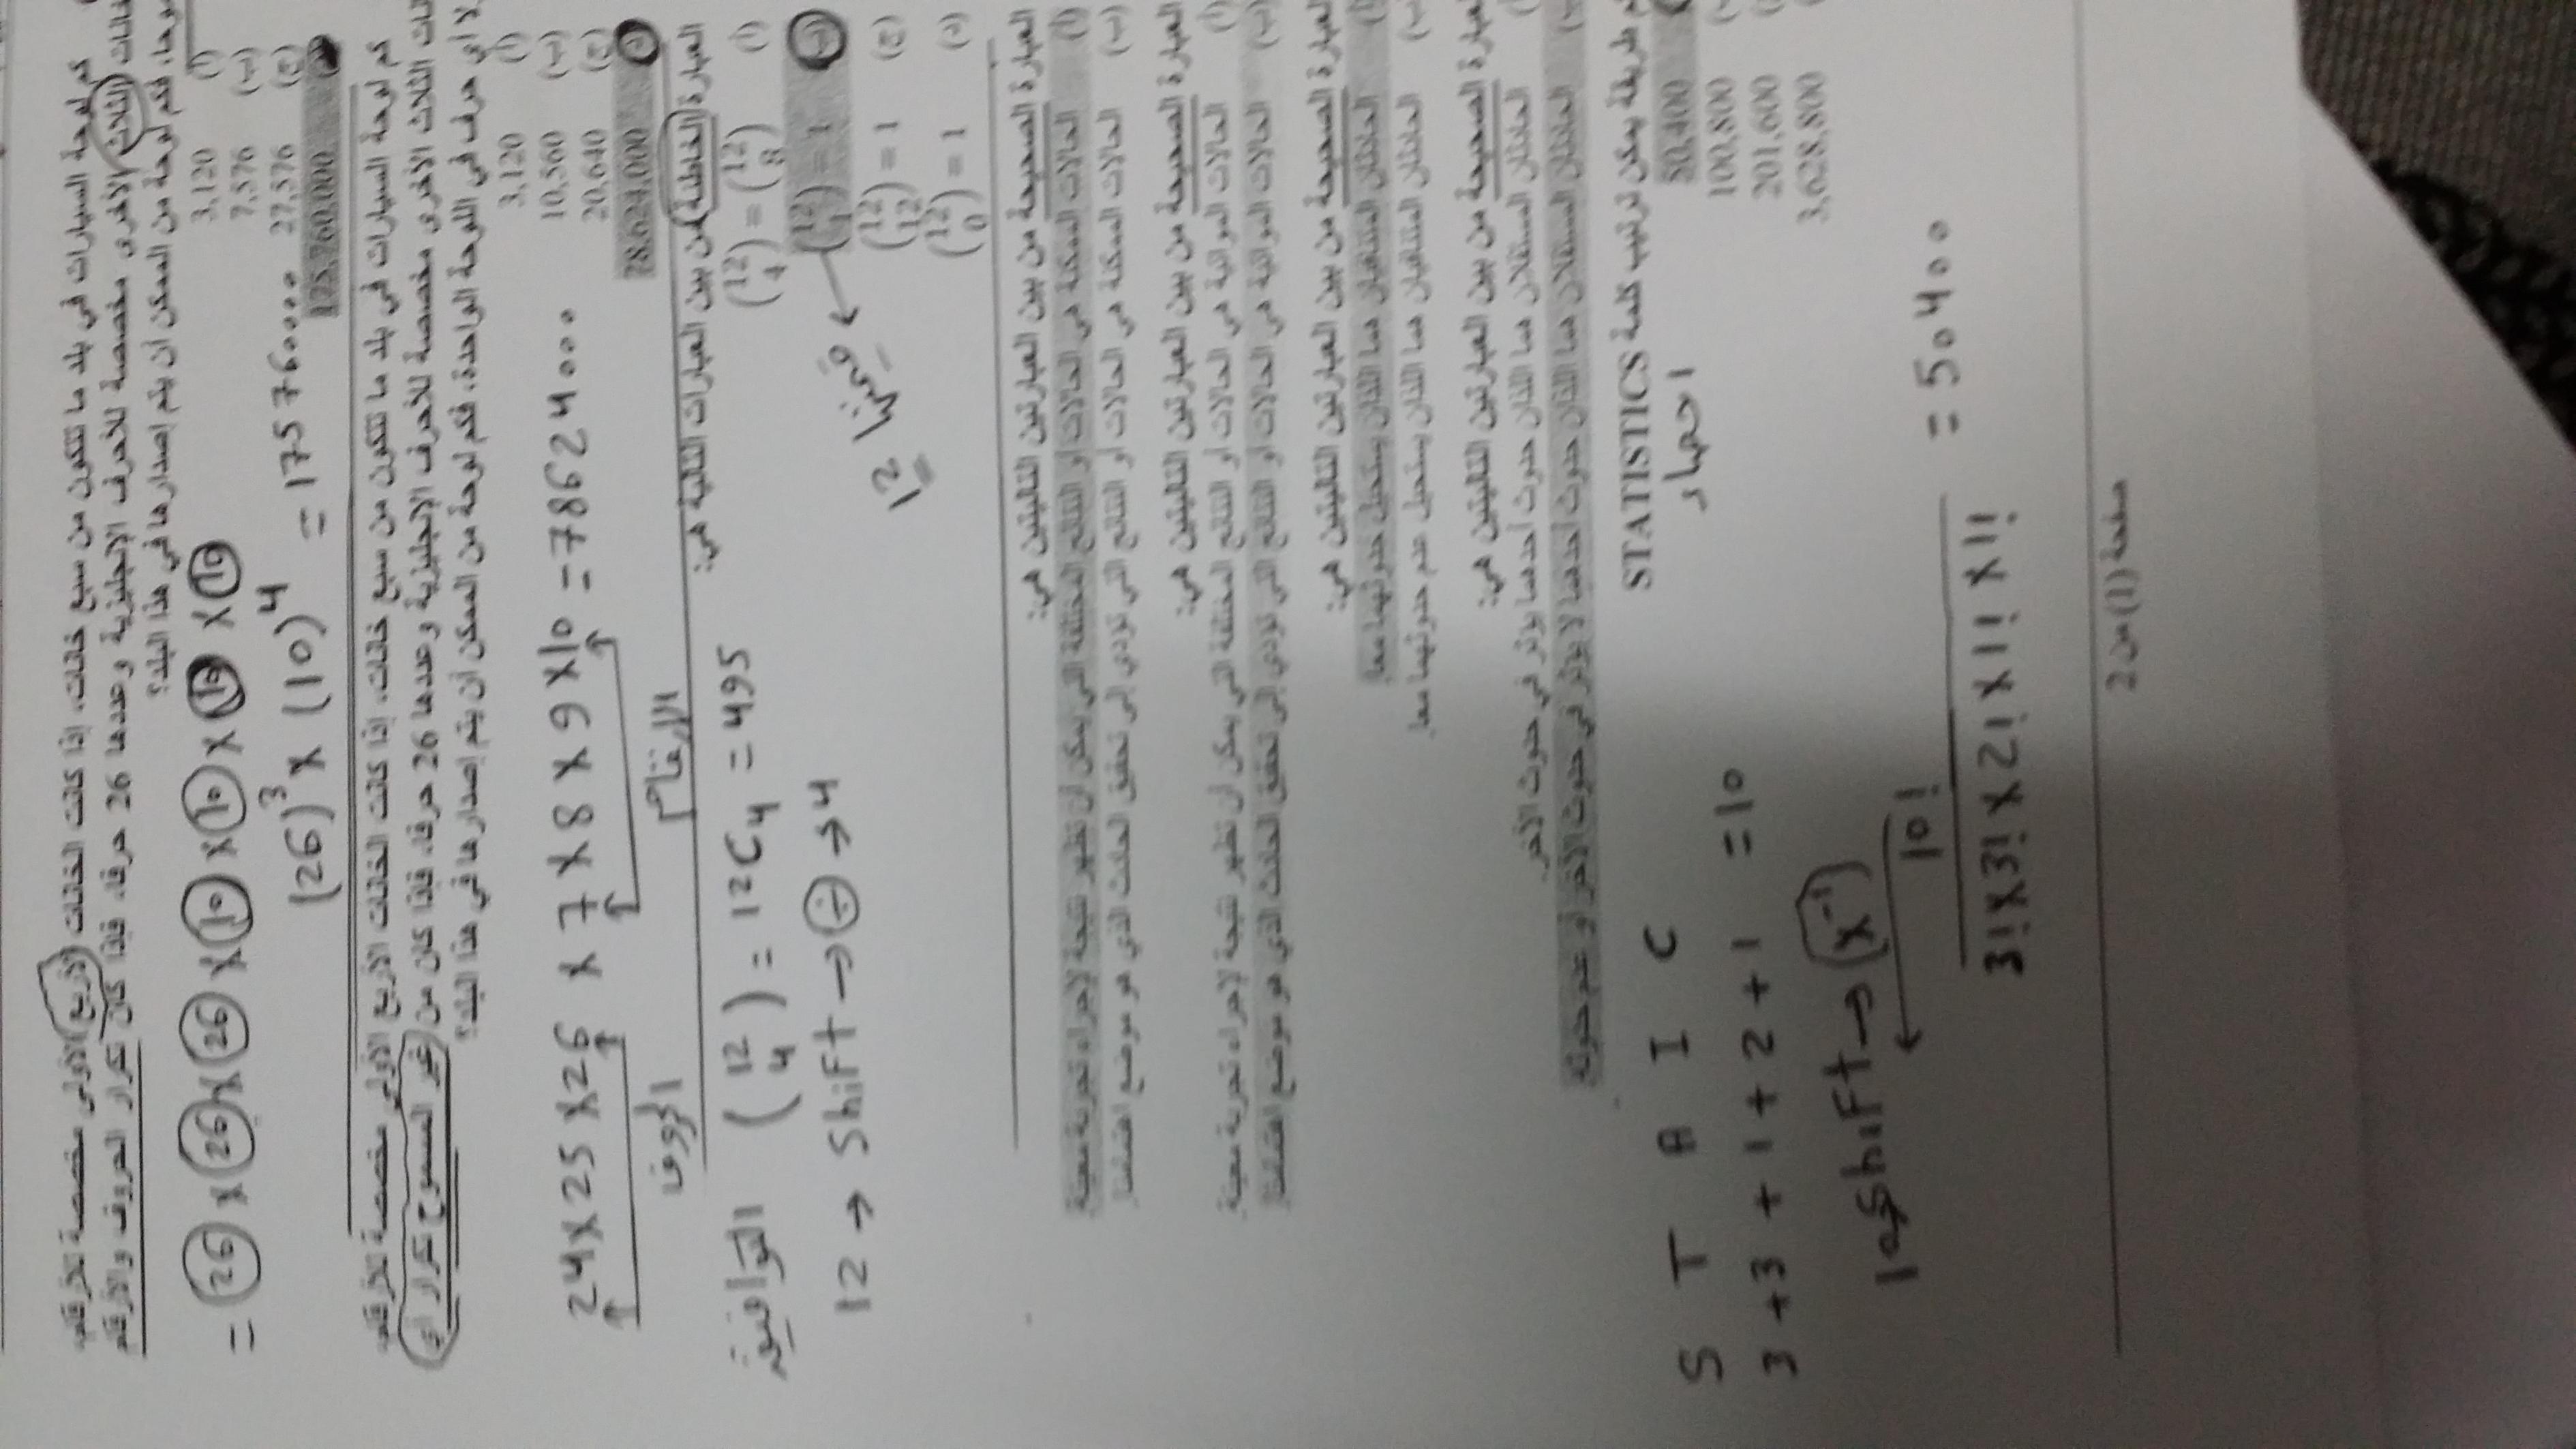 كم لوحة السيارات في بلد ما تتكون من سبع خانات، إذا كانت الخانات الأربع الأولى مخصصة للأرقام
خانات الثلاث الأخرى مخصصة للأحرف الإنجليزية وعددها 26 حرفا، فإذا كان تكرار الحروف والأرقام
فكم لوحة من الممكن أن يتم إصدارها في هذا البلد؟
(أ) 3,120
(ب) 7,576
(ج) 27,576
175,760,000
= 26 x 26 x 26 x 10 x 10 x 10 x 10
(26)³ x (10)⁴ = 175760000
كم لوحة السيارات في بلد ما تتكون من سبع خانات، إذا كانت الخانات الأربع الأولى مخصصة للأرقام
الثلاث الأخرى مخصصة للأحرف الإنجليزية وعددها 26 حرفا، فإذا كان من غير المسموح تكرار أي
لا أي حرف في اللوحة الواحدة، فكم لوحة من الممكن أن يتم إصدارها في هذا البلد؟
(أ) 3,120
(ب) 10,560
(ج) 20,640
(د) 78,624,000
24 x 25 x 26 x 7 x 8 x 9 x 10 = 78624000
الحروف الأرقام
العبارة الخاطئة من بين العبارات التالية هي:
(أ) (12 4) = (12 8)
(ب) (12 1) = 1
(ج) (12 12) = 1
(د) (12 0) = 1
التوافيق (12 4) = 12C4 = 495
12 → Shift → ÷ → 4
12
العبارة الصحيحة من بين العبارتين التاليتين هي:
(أ) الحالات الممكنة هي الحالات أو النتائج المختلفة التي يمكن أن تظهر نتيجة لإجراء تجربة معينة
(ب) الحالات الممكنة هي الحالات أو النتائج التي تؤدي إلى تحقيق الحادث الذي هو موضع اهتمامنا
العبارة الصحيحة من بين العبارتين التاليتين هي:
(أ) الحالات المواتية هي الحالات أو النتائج المختلفة التي يمكن أن تظهر نتيجة لإجراء تجربة معينة.
(ب) الحالات المواتية هي الحالات أو النتائج التي تؤدي إلى تحقيق الحادث الذي هو موضع اهتمامنا
العبارة الصحيحة من بين العبارتين التاليتين هي:
(أ) الحادثان المتنافيان هما اللذان يستحيل حدوثهما معا.
(ب) الحادثان المتنافيان هما اللذان يستحيل عدم حدوثهما معا.
العبارة الصحيحة من بين العبارتين التاليتين هي:
(أ) الحادثان المستقلان هما اللذان حدوث أحدهما يؤثر في حدوث الآخر.
(ب) الحادثان المستقلان هما اللذان حدوث أحدهما لا يؤثر في حدوث الآخر أو عدم حدوثه
كم طريقة يمكن ترتيب كلمة STATISTICS
احصاء
50,400
100,800
201,600
3,628,800
S T A I C
3 + 3 + 1 + 2 + 1 = 10
10 → Shift → (x⁻¹)
10!
3! x 3! x 2! x 1! x 1!
= 50400
صفحة (1) من 2